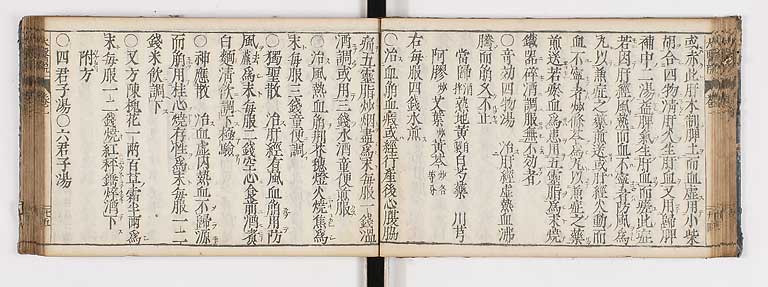 或赤此肝木制脾土而血虛用小柴
胡合四物清肝火生肝血又用歸脾
補中二湯益脾氣生肝血而瘥此症
若因肝經風熱而血不寧者防風為
丸以兼症之藥煎送或肝經火動而
血不寧者炒條芩為丸以兼症之藥
煎送若瘀血為患用五靈脂為末燒
鐵器碎酒調服無不効者
○奇効四物湯 治肝經虛熱血沸
騰而崩久不止
當歸酒 熟地黃 白芍藥 川芎
阿膠炒 艾葉炒 黃芩炒各
右每服四錢水煎
○治血崩血瘕或經行產後心腹脇
痛五靈脂炒烟盡為末每服一錢溫
酒調或用三錢水酒童便煎服
○治風熱血崩荊芥穗燈火燒焦為
末每服三錢童便調
○獨聖散 治肝經有風血崩用防
風去蘆為末每服二錢空心食前酒煮
白麵清飲調下極驗
○神應散 治血虛內熱血不歸源
而崩用桂心燒存性為末每服一二
錢米飲調下
○又方陳槐花一兩百艸霜半兩為
末每服一二錢燒紅秤錘淬酒下
附方
○四君子湯○六君子湯